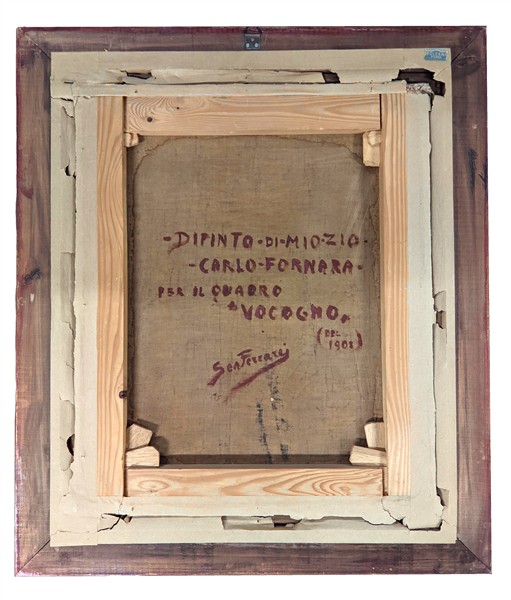 -DIPINTO·DI·MIO·ZIO-
-CARLO-FORNARA-
PER IL QUADRO
"VOCOGNO"
(DEL
1902)